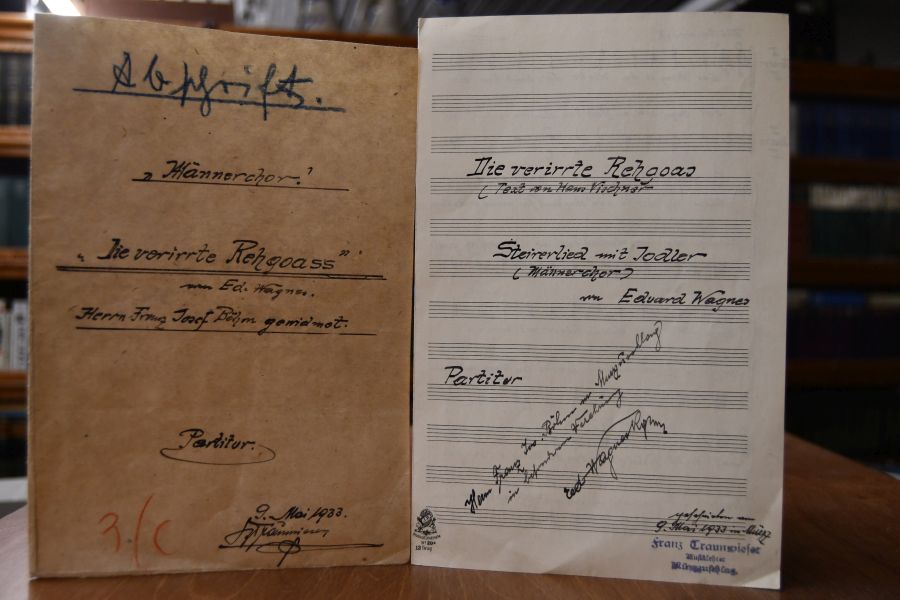 Abschrift.
„Männerchor."
„Die verirrte Rehgoass"
von Ed. Wagner.
Herrn Franz Josef Böhm gewidmet.
Partitur.
9. Mai 1933.
3/c
Die verirrte Rehgoas
(Text von Hans Vischner
Steirerlied mit Jodler
(Männerchor)
von Eduard Wagner
Partitur
Herrn Franz Jos. Böhm in Mürzzuschlag
in besonderer Verehrung
Ed. Wagner
geschrieben am
9. Mai 1933 in Mürzz
Franz Traunwieser
Musiklehrer
Mürzzuschlag.